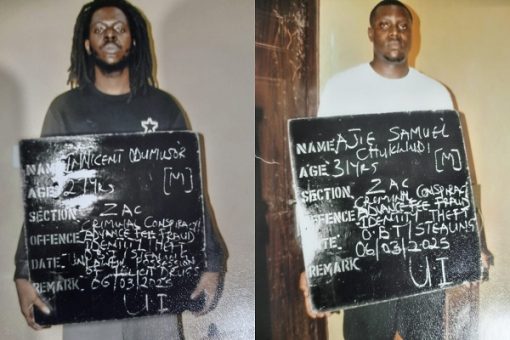 NAME INNICENT ODUMUSOR
AGE 21YRS [M]
SECTION ZAC
CRIMINAL CONSPIRACY
OFFENCE ADVANCE FEE FRAUD
IDENTITY THEFT
O.B.T / STEALING
DATE UNLAWFUL POSSESSION
OF ILLICIT DRUGS
REMARK 06/03/2025
UI
NAME AJIE SAMUEL
CHUKWUDI
AGE 31YRS [M]
SECTION ZAC
CRIMINAL CONSPIRACY
OFFENCE ADVANCE FEE FRAUD
IDENTITY THEFT
O.B.T / STEALING
DATE 06/03/2025
REMARK
UI